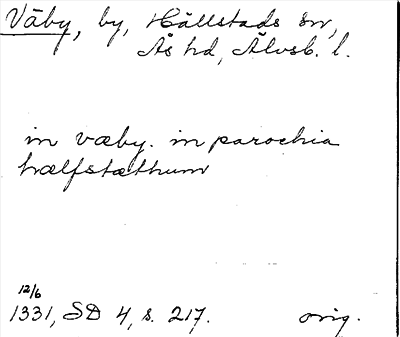 Väby, by, Hällstads sn,
Ås hd, Älvsb. l.
in væby. in parochia
hælfstæthum
12/6
1331, SD 4, s. 217. orig.